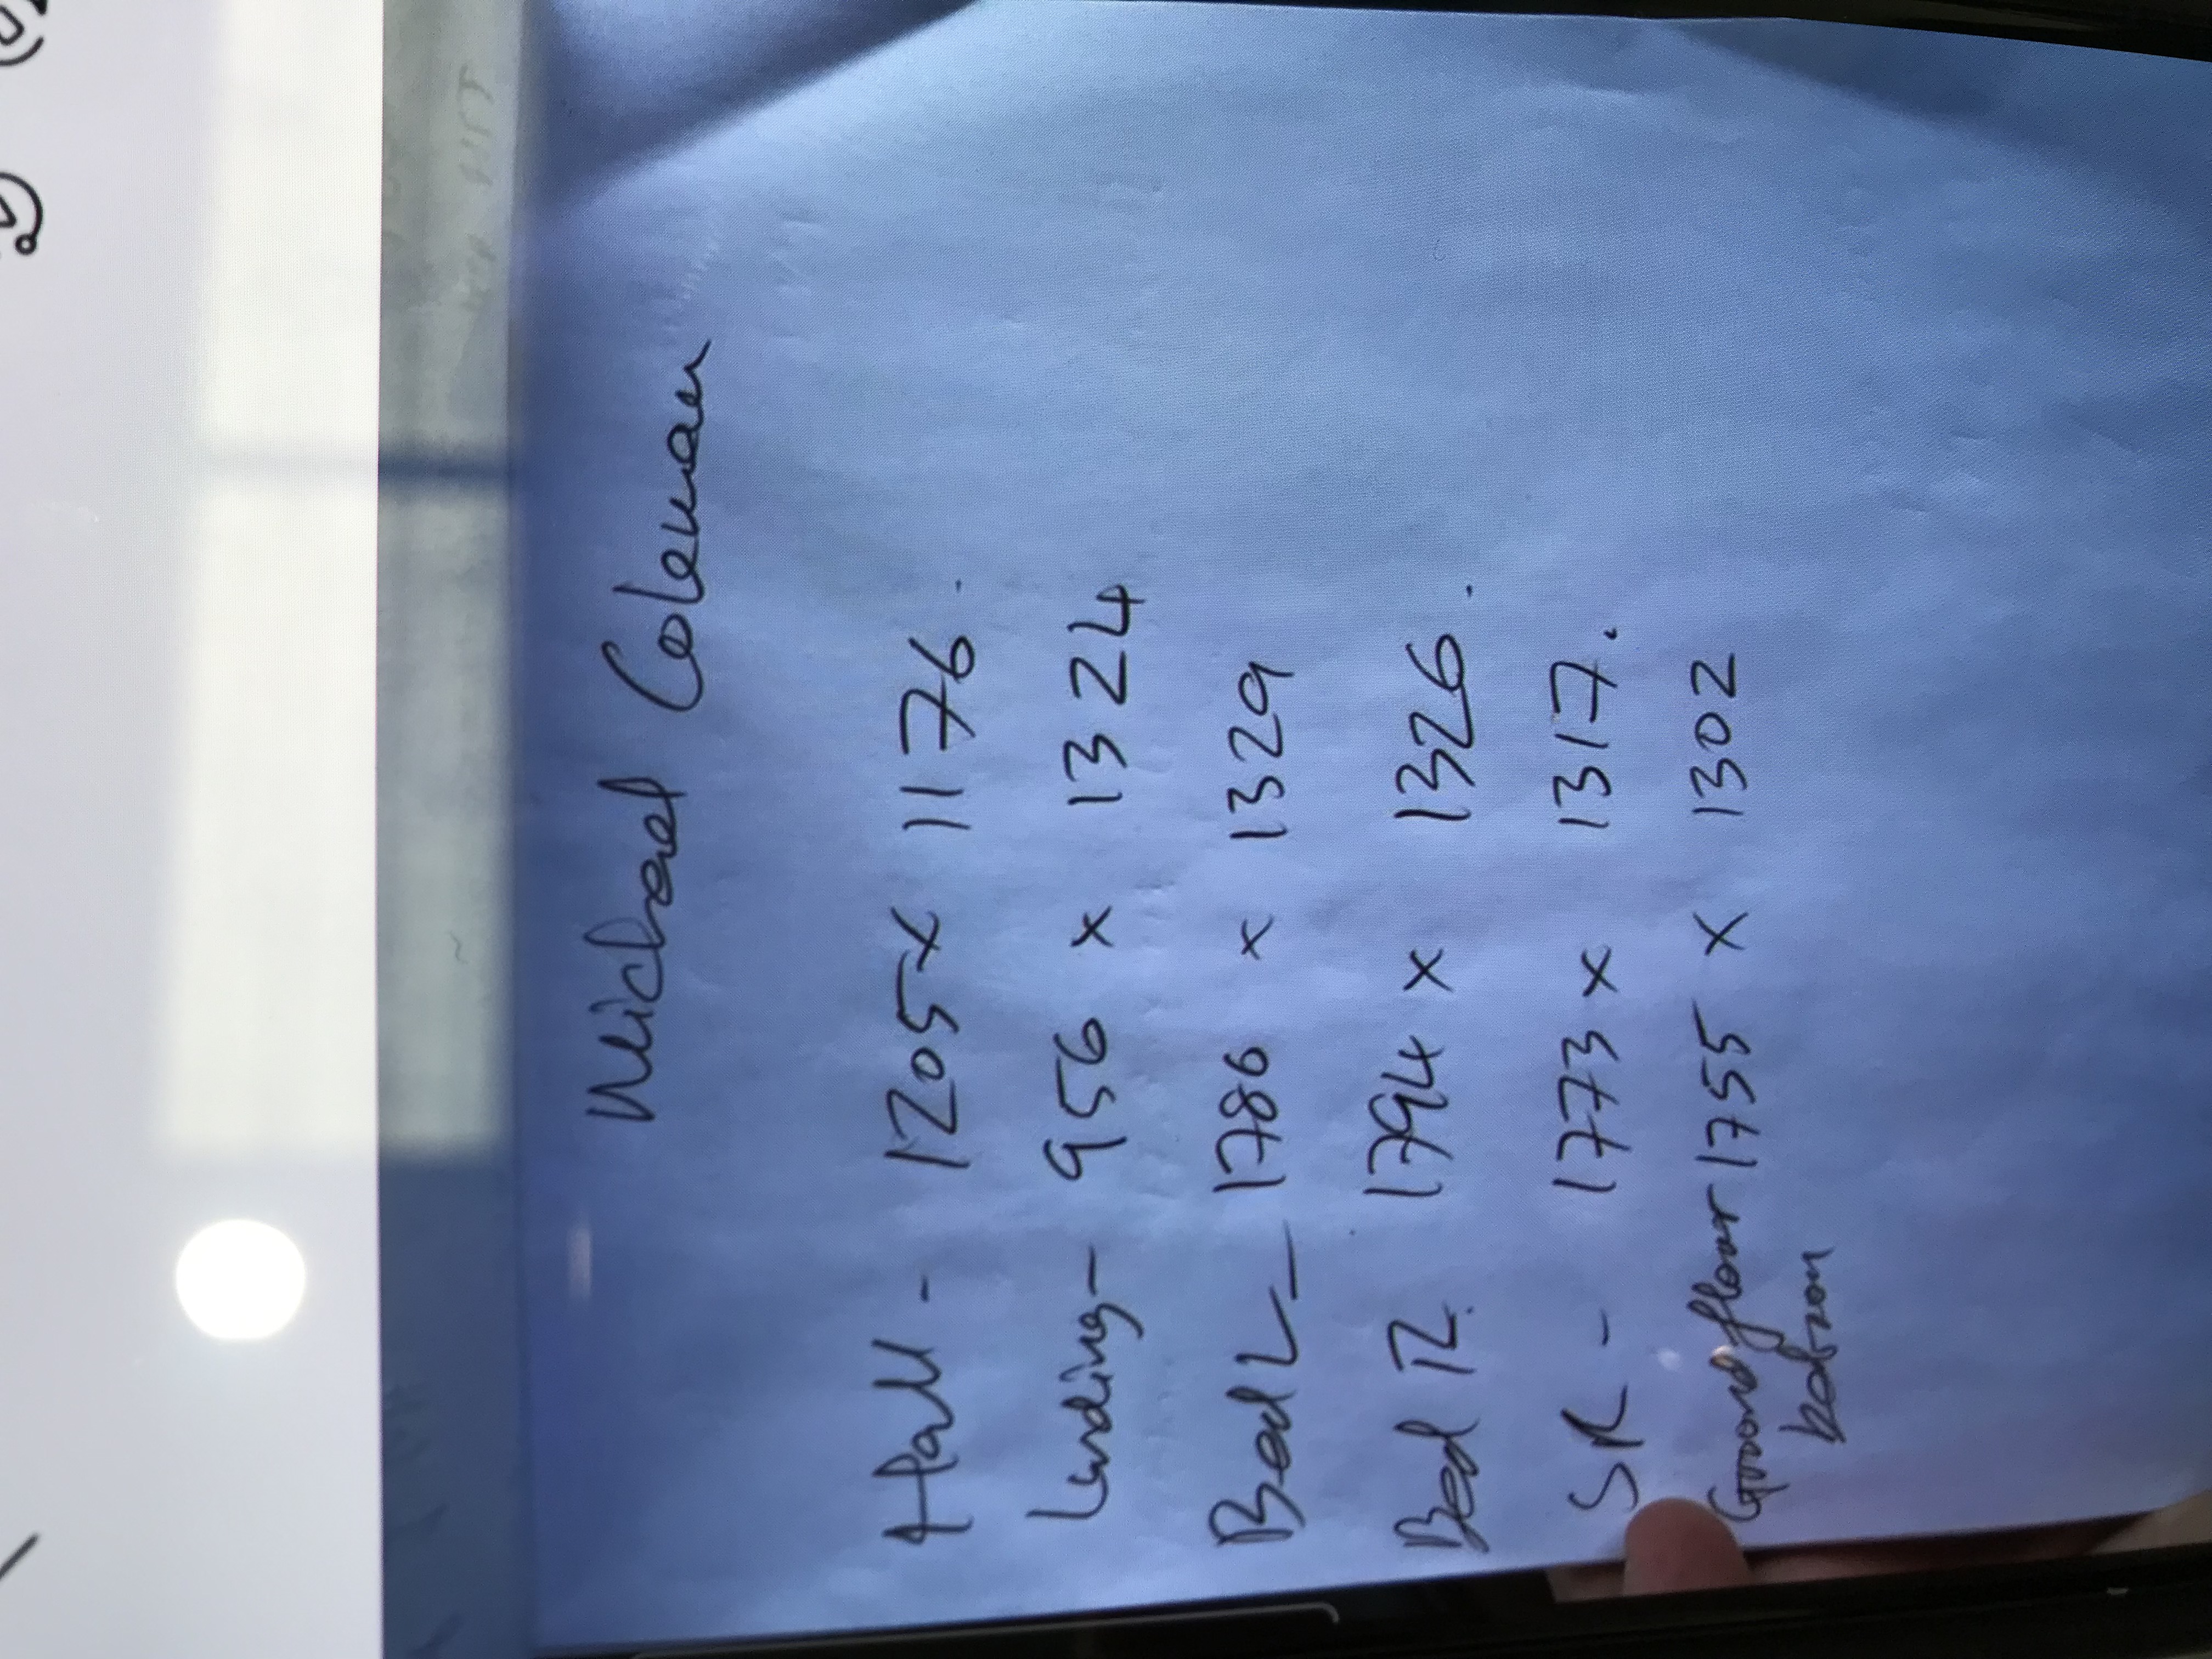 Michael Coleman
Hall - 1205 x 1176.
Landing - 956 x 1324
Bed L - 1786 x 1329
Bed R. 1794 x 1326.
SR - 1773 x 1317.
Ground floor 1755 x 1302